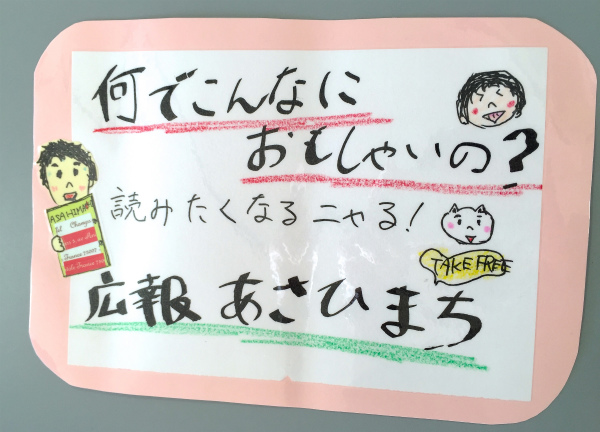 何でこんなに
おもしゃいの?
読みたくなるニャる!
TAKE FREE
広報 あさひまち
ASAHIMA